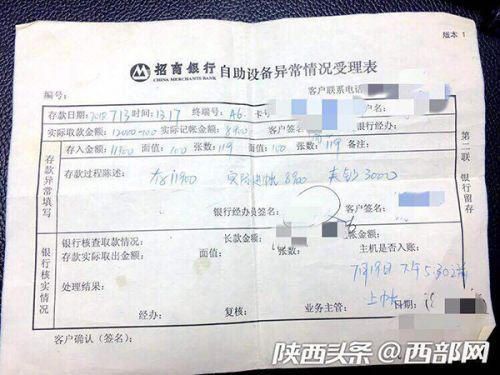 版本 1
招商银行 自助设备异常情况受理表
CHINA MERCHANTS BANK
编号： 客户联系电话
存款日期： 713 时间：1317 终端号：A6 卡号 户名：
实际取款金额： 实际记帐金额：8900 客户签名 银行经办：
存入金额：11900 面值：100 张数：119 面值：100 张数：119 备注：
存款异常填写
存款过程陈述： 存11900 实际 8900 3000
银行经办员签名： 客户签名：
银行核实情况
银行核查取款情况： 长款金额： 帐金额：
存款实际取出金额： 面值： 张数： 主机是否入账：
7月19日 下午5:30
处理结果：
上帐
经办： 复核： 业务主管： 日期：
客户确认（签名）：
第二联 银行留存
陕西头条@西部网